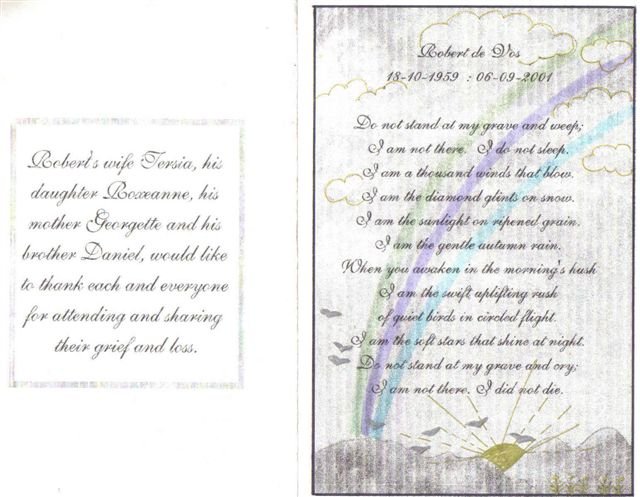 Robert's wife Tersia, his
daughter Roxeanne, his
mother Georgette and his
brother Daniel, would like
to thank each and everyone
for attending and sharing
their grief and loss.
Robert de Vos
18-10-1959 : 06-09-2001
Do not stand at my grave and weep;
I am not there. I do not sleep.
I am a thousand winds that blow.
I am the diamond glints on snow.
I am the sunlight on ripened grain.
I am the gentle autumn rain.
When you awaken in the morning's hush
I am the swift uplifting rush
of quiet birds in circled flight.
I am the soft stars that shine at night.
Do not stand at my grave and cry;
I am not there. I did not die.